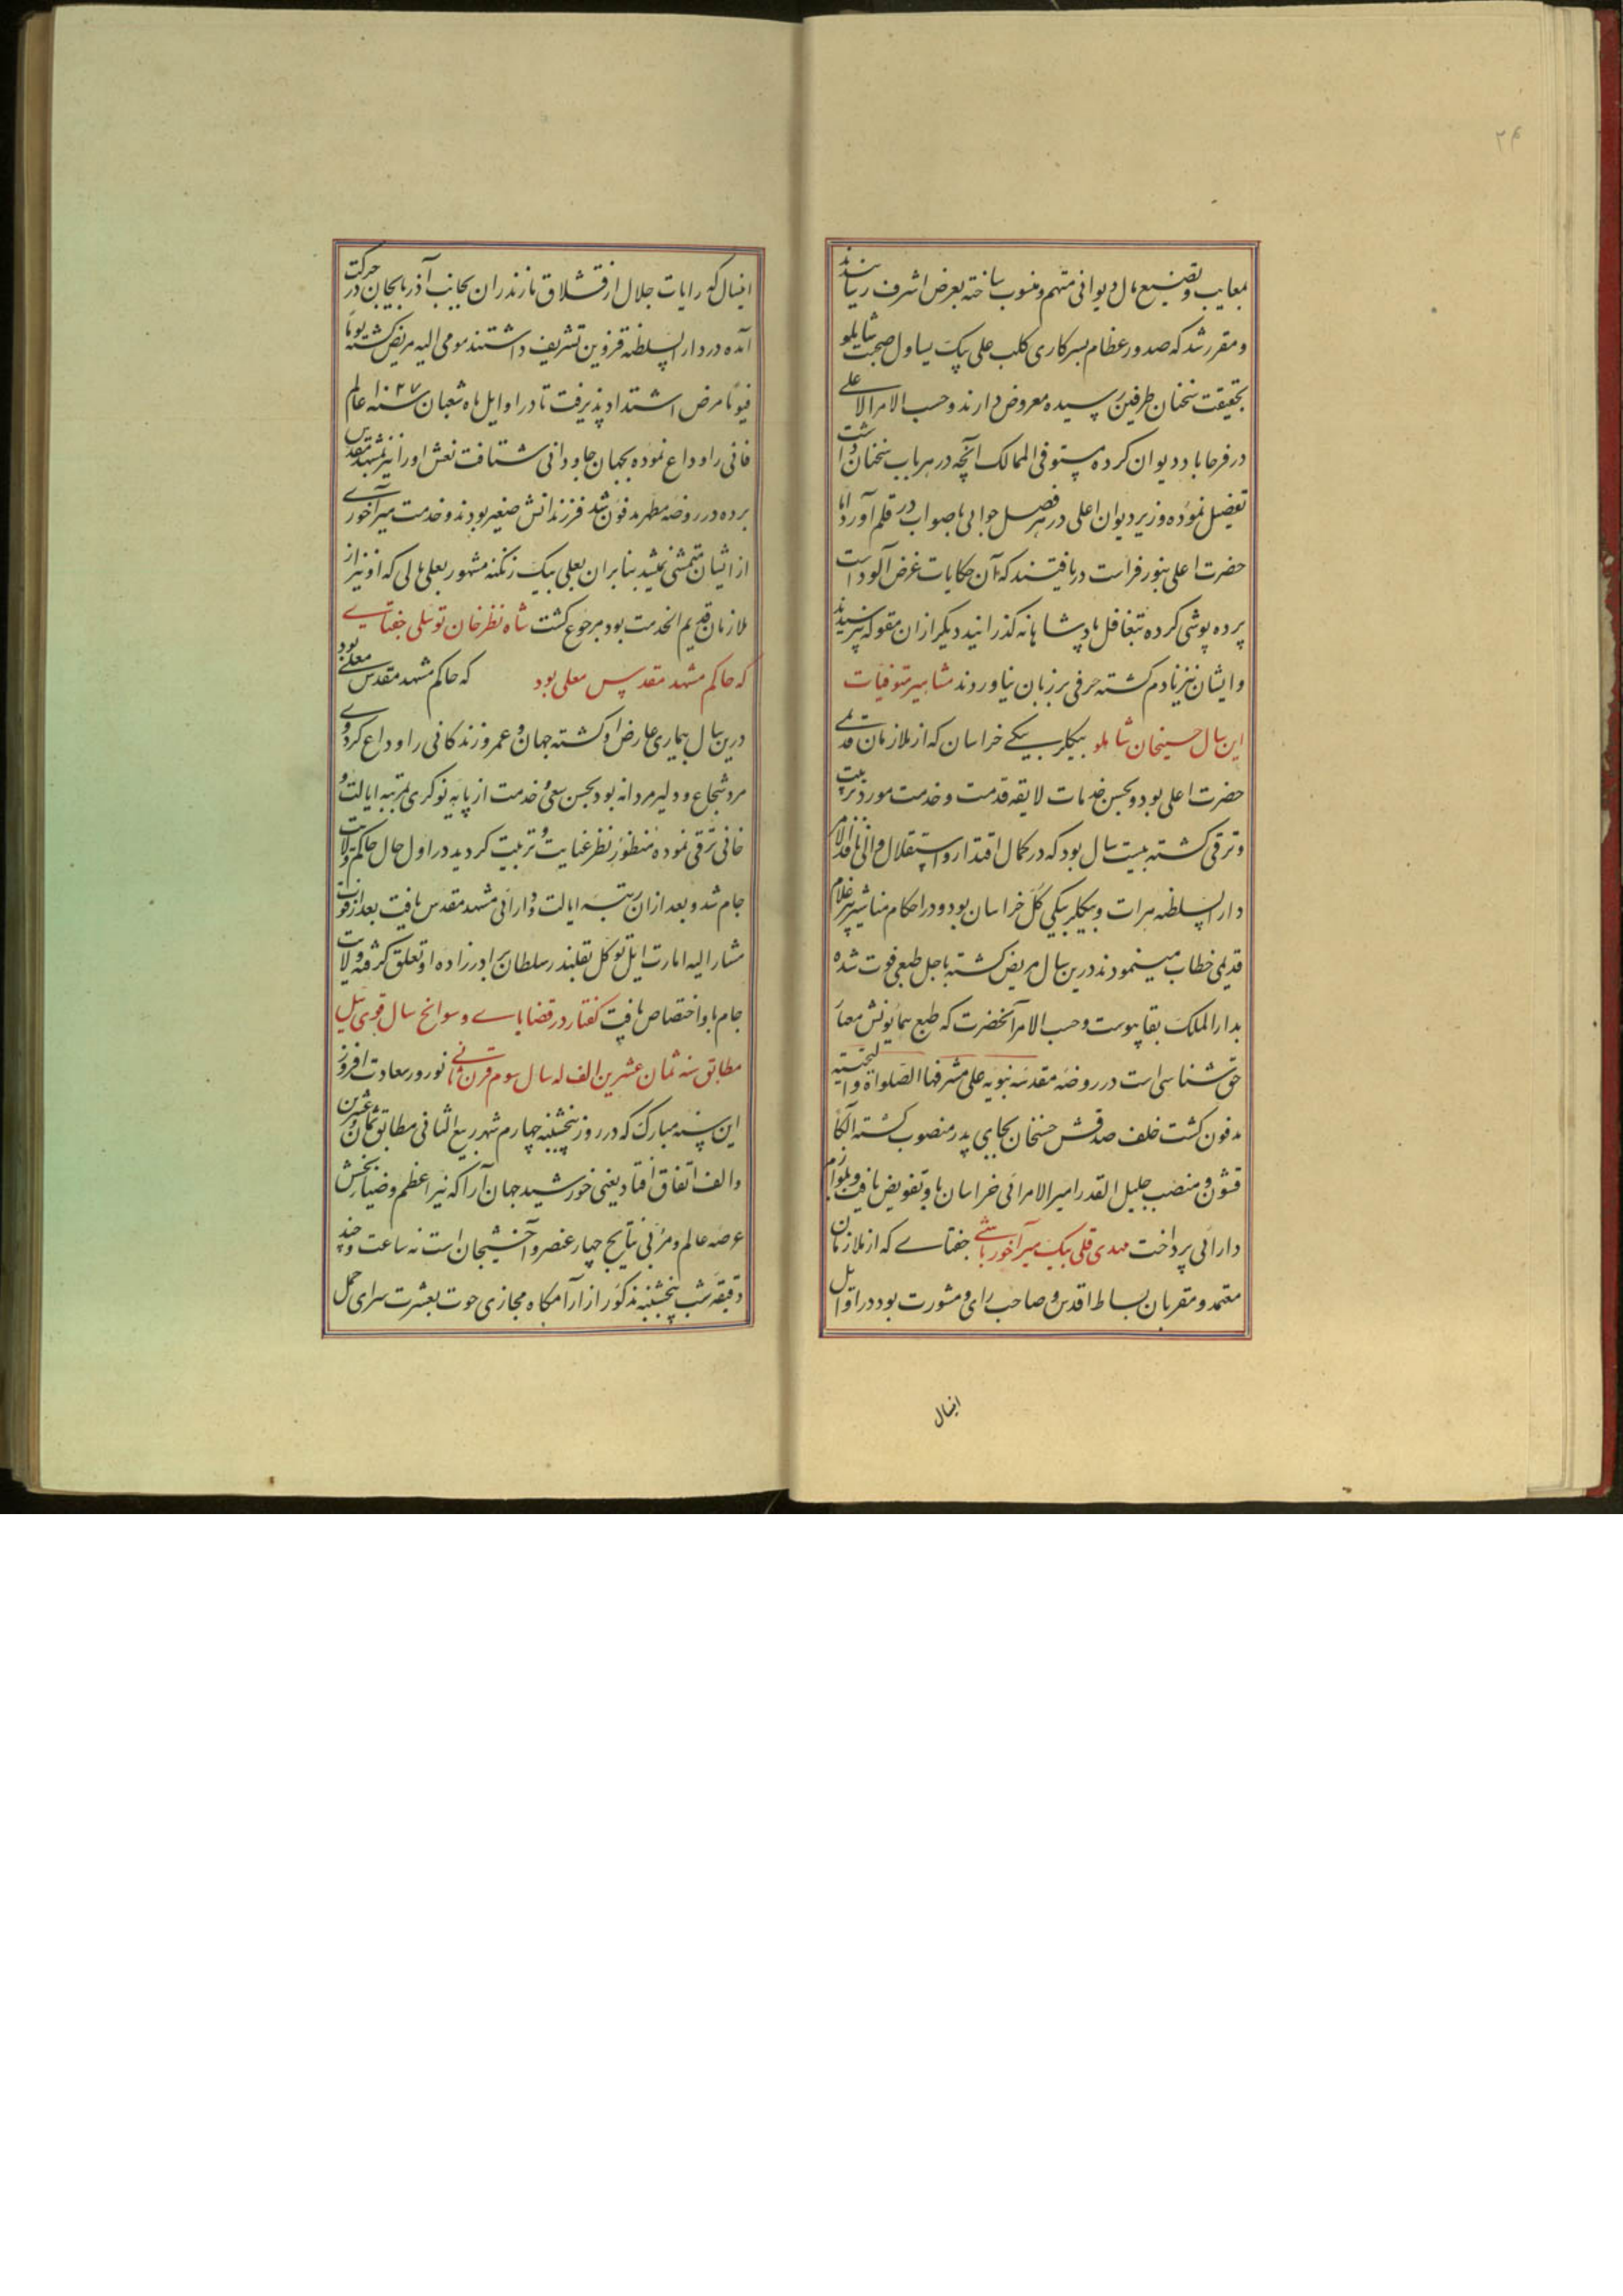 ۲۴
بمعایب و تضییع مال دیوانی متهم و منسوب ساخته بعرض اشرف رسانیدند
و مقرر شد که صدور عظام بسرکاری کلب علی بیک یساول صحبت شاملو
بحقیقت سخنان طرفین رسیده معروض دارند و حسب الامر الاعلی
در فرحاباد دیوان کرده مستوفی الممالک آنچه در هر باب سخنان داشت
تفصیل نموده وزیر دیوان اعلی در هر فصل جوابی باصواب در قلم آورد اما
حضرت اعلی بنور فراست دریافتند که آن حکایات غرض آلود است
پرده پوشی کرده بتغافل پادشاهانه گذرانید دیگر از ان مقوله نپرسیدند
و ایشان نیز نادم کشته حرفی بر زبان نیاوردند مشاهیر متوفیات
این سال حسینخان شاملو بیکلربیکی خراسان که از ملازمان قدیمی
حضرت اعلی بود و بحسن خدمات لایقه قدمت و خدمت مورد تربیت
و ترقی کشته بیست سال بود که در کمال اقتدار و استقلال والی نافذ الامر
دار السلطنه هرات و بیکلربیکی کل خراسان بود و در احکام مناشیر پیر غلام
قدیمی خطاب مینمودند درین سال مریض کشته باجل طبعی فوت شده
بدار الملک بقا پیوست و حسب الامر آنحضرت که طبع همایونش معیار
حق شناسی است در روضه مقدسه نبویه علی مشرفها الصلواة والتحیة
مدفون کشت خلف صدقش حسنخان بجای پدر منصوب کشته الکا
قشون و منصب جلیل القدر امیر الامرائی خراسان باو تفویض یافت و بلوازم
دارائی پرداخت مهدی قلی بیک میرآخور باشی جغتای که از ملازمان
معتمد و مقربان بساط اقدس و صاحب رای و مشورت بود در اوایل
اینسال
اینسال که رایات جلال از قشلاق مازندران بجانب آذربایجان در حرکت
آمده در دار السلطنه قزوین تشریف داشتند مومی الیه مریض کشته یوما
فیوما مرض اشتداد پذیرفت تا در اوایل ماه شعبان سنه ۱۰۲۷ عالم
فانی را وداع نموده بجهان جاودانی شتافت نعش او را نیز بمشهد مقدس
برده در روضه مطهر مدفون شد فرزندانش صغیر بودند و خدمت میرآخوری
از ایشان متمشی نمیشد بنابران بعلی بیک زنکنه مشهور بعلی بالی که او نیز از
ملازمان قدیم الخدمت بود مرجوع کشت شاه نظر خان توکلی جغتای
که حاکم مشهد مقدس معلی بود که حاکم مشهد مقدس معلی بود
درین سال بیماری عارض او کشته جهان و عمر و زندکانی را وداع کرد وی
مرد شجاع و دلیر مردانه بود بحسن سعی و خدمت از پایه نوکری بمرتبه ایالت و
خانی ترقی نموده منظور نظر عنایت و تربیت کردید در اول حال حاکم ولایت
جام شد و بعد از ان برتبه ایالت و دارائی مشهد مقدس یافت بعد از فوت
مشار الیه امارت ایل توکل بقلندر سلطان برادرزاده او تعلق کرفته ولایت
جام باو اختصاص یافت کفتار در قضایای و سوانح سال قوی ئیل
مطابق سنه ثمان عشرین الف له سال سوم قرن ثانی نوروز سعادت افروز
این سنه مبارک که در روز پنجشنبه چهارم شهر ربیع الثانی مطابق ثمان و عشرین
و الف اتفاق افتاد یعنی خورشید جهان آرا که نیر اعظم و ضیابخش
عرصه عالم و مربی نتایج چهار عنصر و آخشیجان است نه ساعت و چند
دقیقه شب پنجشنبه مذکور از آرامگاه مجازی حوت بعشرت سرای حمل